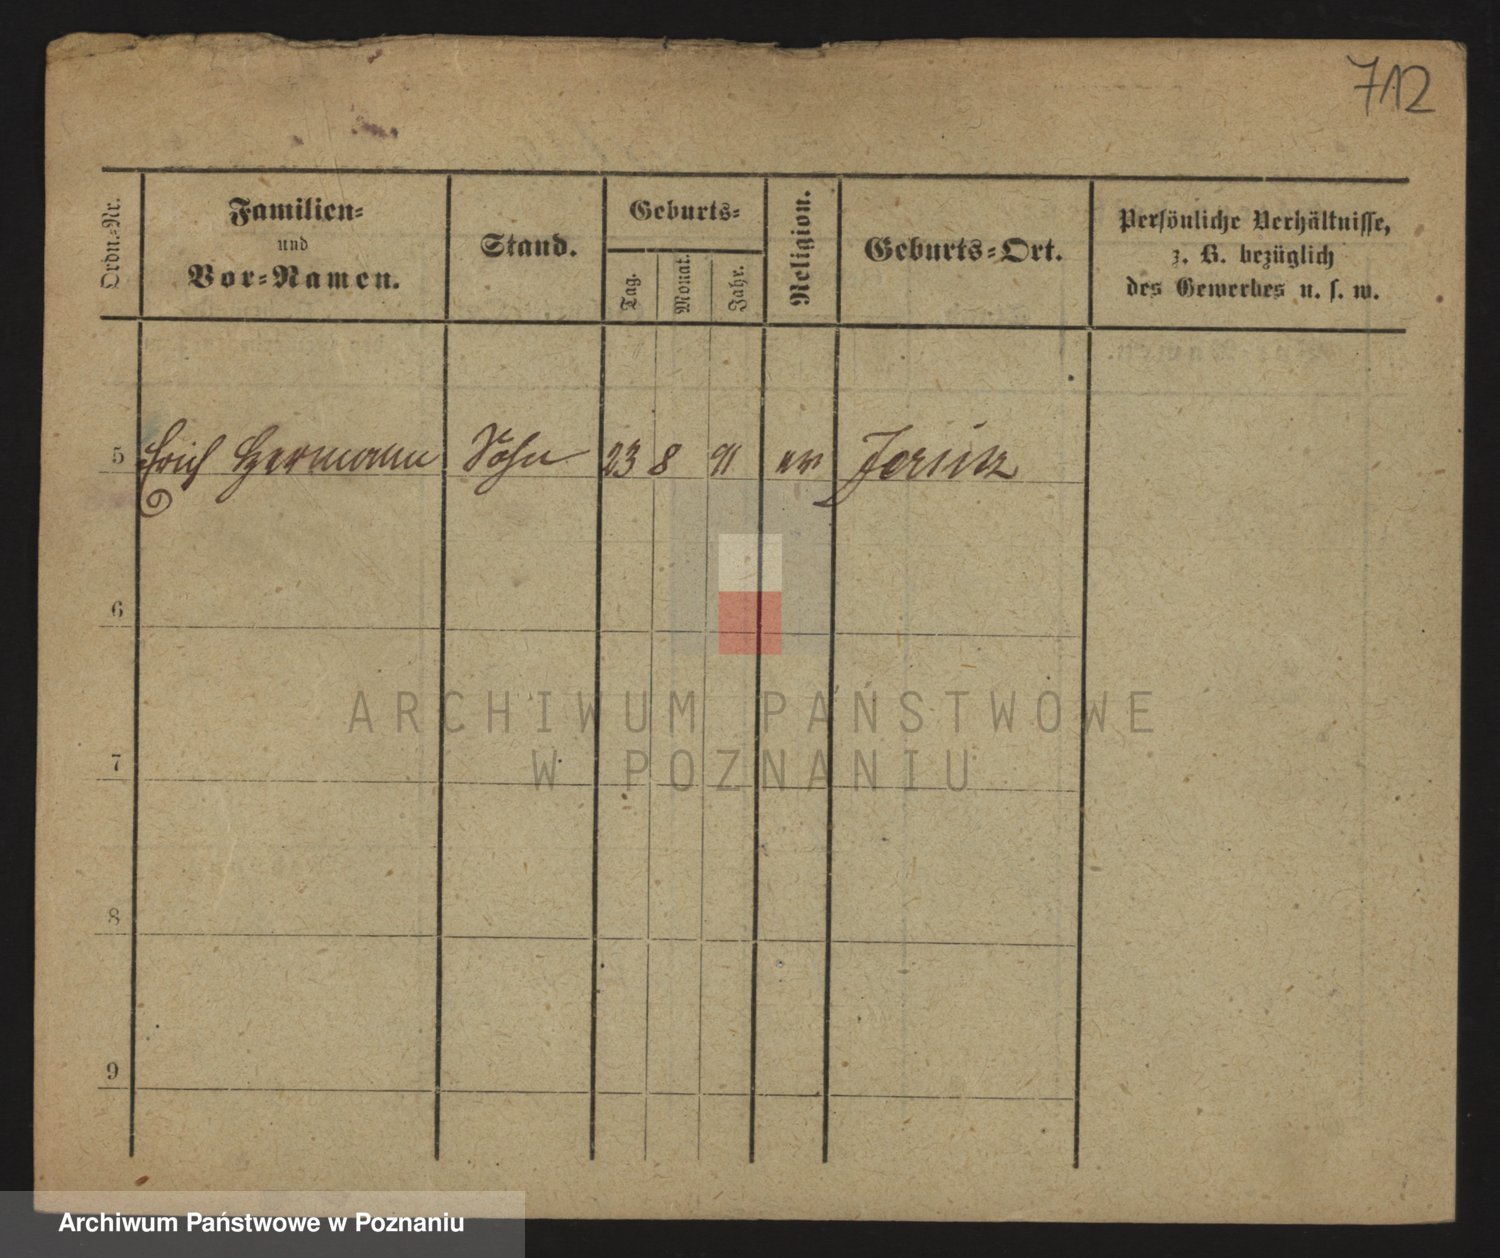 712
Ordn.-Nr.
Familien-
und
Vor-Namen.
Stand.
Geburts-
Tag.
Monat.
Jahr.
Religion.
Geburts-Ort.
Persönliche Verhältnisse,
z. B. bezüglich
des Gewerbes u. s. w.
5 Erich Hermann Sohn 23 8 91 ev
6
7
8
9
ARCHIWUM PAŃSTWOWE
W POZNANIU
Archiwum Państwowe w Poznaniu